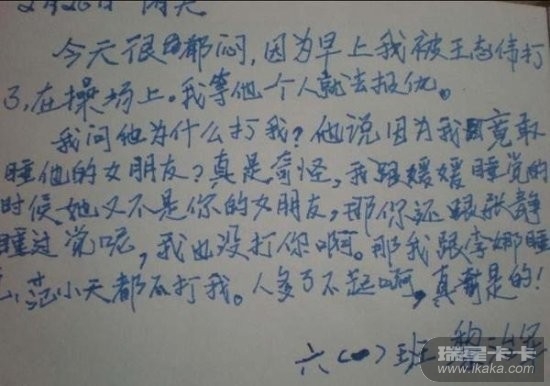 2月26日 阴天
今天很郁闷,因为早上我被王志伟打
了,在操场上。我等他一个人就去报仇。
我问他为什么打我?他说因为我竟敢
睡他的女朋友?真是奇怪,我跟媛媛睡觉的
时候她又不是你的女朋友,那你还跟张静
睡过觉呢,我也没打你啊。那我跟李娜睡
范小天都不打我。人多了不起啊,真是的!
六(一)班 黎
瑞星卡卡
www.ikaka.com